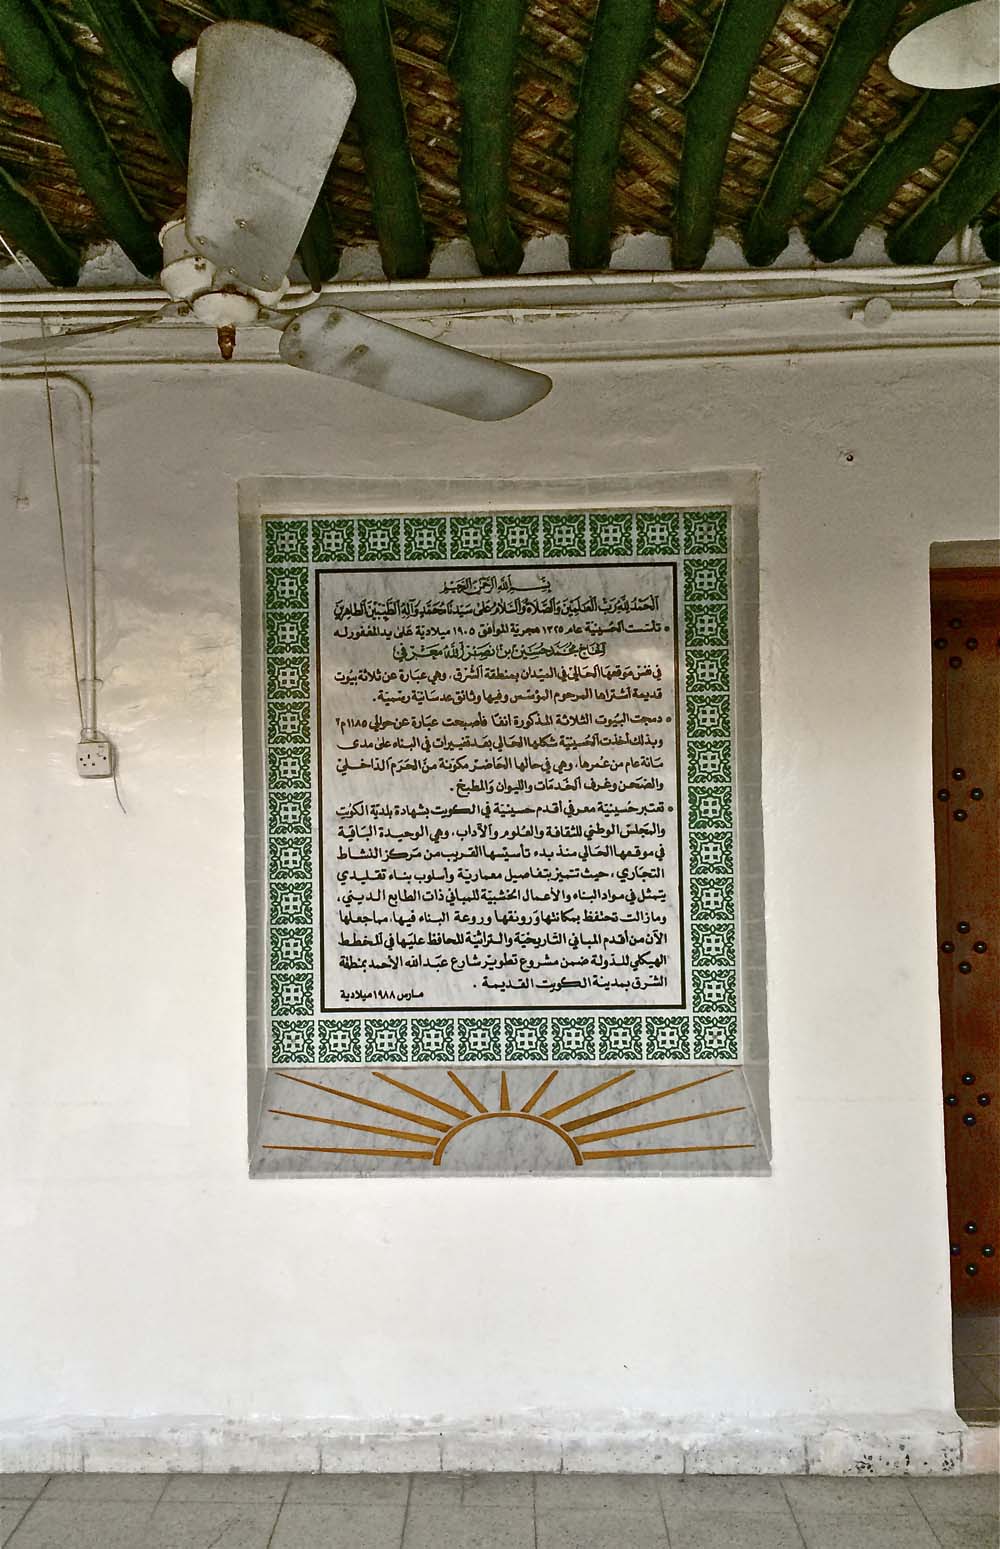 بسم الله الرحمن الرحيم
الحمد لله رب العالمين والصلاة والسلام على سيدنا محمد وآله الطيبين الطاهرين
• تأسست الحسينية عام ١٣٢٥ هجرية الموافق ١٩٠٥ ميلادية على يد المغفور له
الحاج محمد حسين بن نصر الله معرفي
في نفس موقعها الحالي في الميدان بمنطقة الشرق، وهي عبارة عن ثلاثة بيوت
قديمة اشتراها المرحوم المؤسس وفيها وثائق عدسانية رسمية.
• دمجت البيوت الثلاثة المذكورة آنفا فأصبحت عبارة عن حوالي ١١٨٥م٢
وبذلك أخذت الحسينية شكلها الحالي بعد تغييرات في البناء على مدى
مائة عام من عمرها، وهي في حالها الحاضر مكونة من الحرم الداخلي
والصحن وغرف الخدمات والليوان والمطبخ.
• تعتبر حسينية معرفي أقدم حسينية في الكويت بشهادة بلدية الكويت
والمجلس الوطني للثقافة والعلوم والآداب، وهي الوحيدة الباقية
في موقعها الحالي منذ بدء تأسيسها القريب من مركز النشاط
التجاري، حيث تتميز بتفاصيل معمارية وأسلوب بناء تقليدي
يتمثل في مواد البناء والأعمال الخشبية للمباني ذات الطابع الديني،
ومازالت تحتفظ بمكانتها ورونقها وروعة البناء فيها، مما جعلها
الآن من أقدم المباني التاريخية والتراثية المحافظ عليها في المخطط
الهيكلي للدولة ضمن مشروع تطوير شارع عبدالله الأحمد بمنطقة
الشرق بمدينة الكويت القديمة.
مارس ١٩٨٨ ميلادية